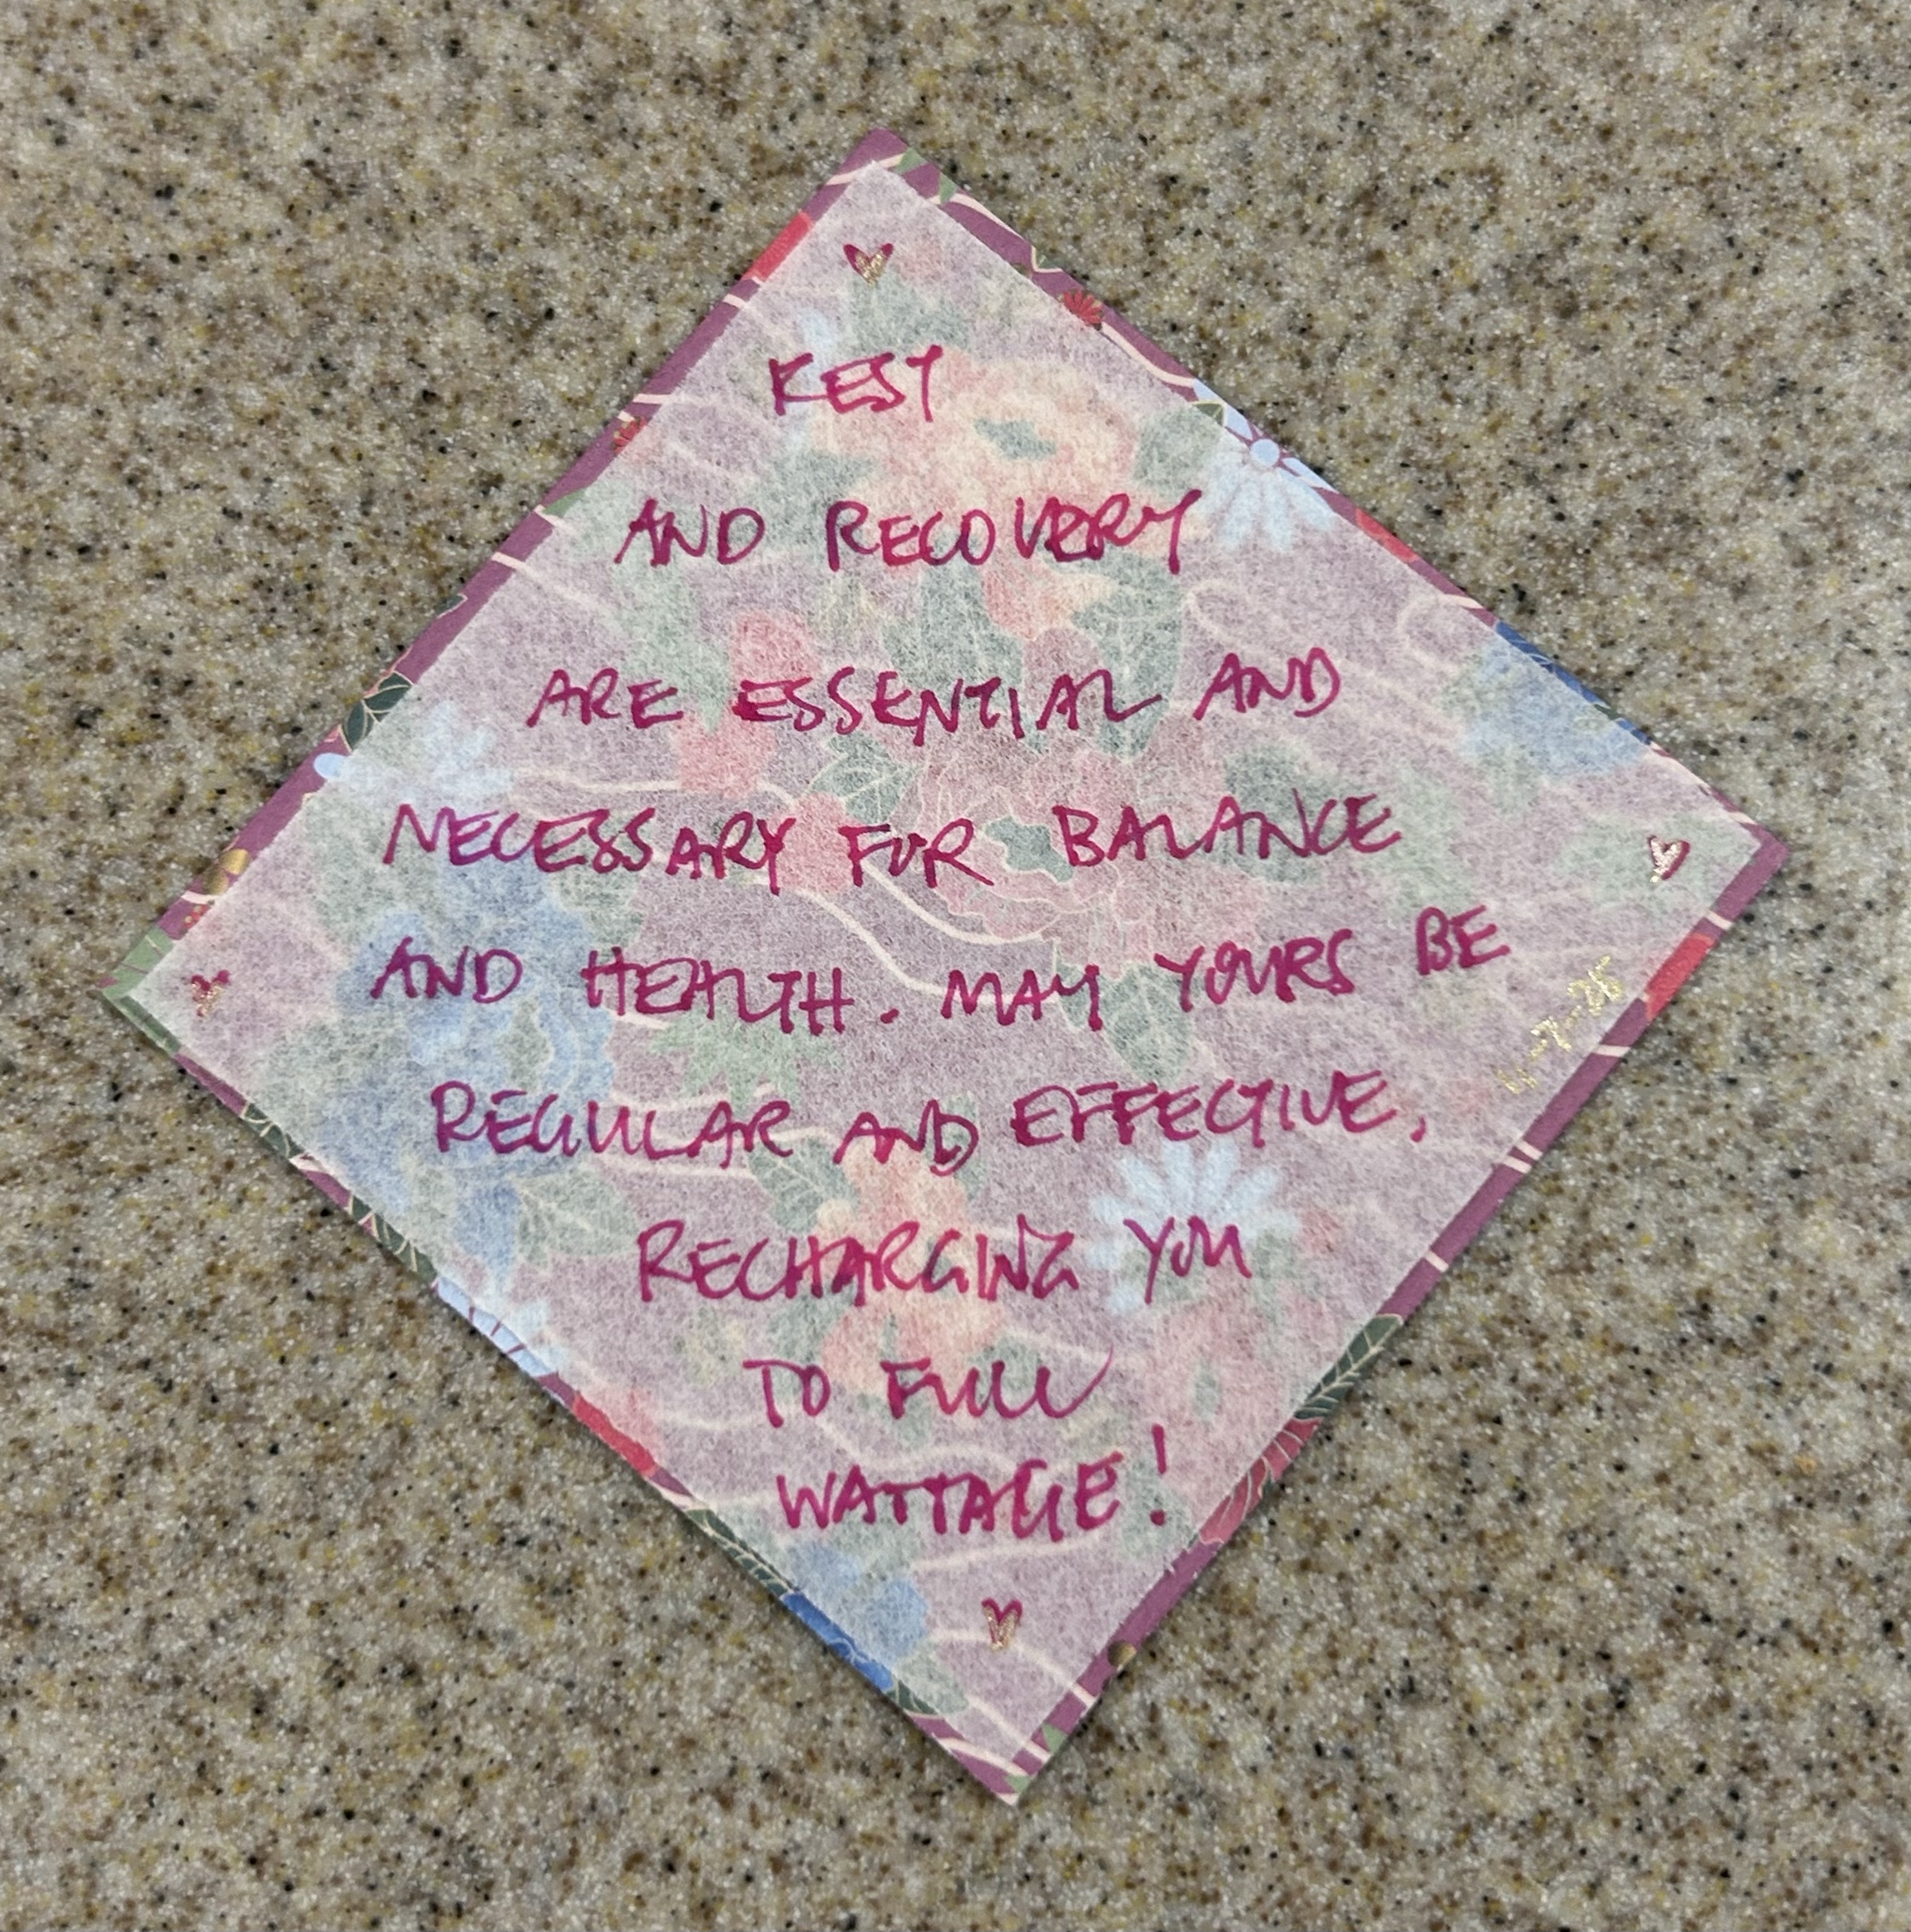 REST
AND RECOVERY
ARE ESSENTIAL AND
NECESSARY FOR BALANCE
AND HEALTH. MAY YOURS BE
REGULAR AND EFFECTIVE,
RECHARGING YOU
TO FULL
WATTAGE!